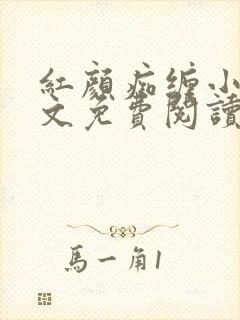 紅顏痴缠小
文免費閱讀
馬一角1